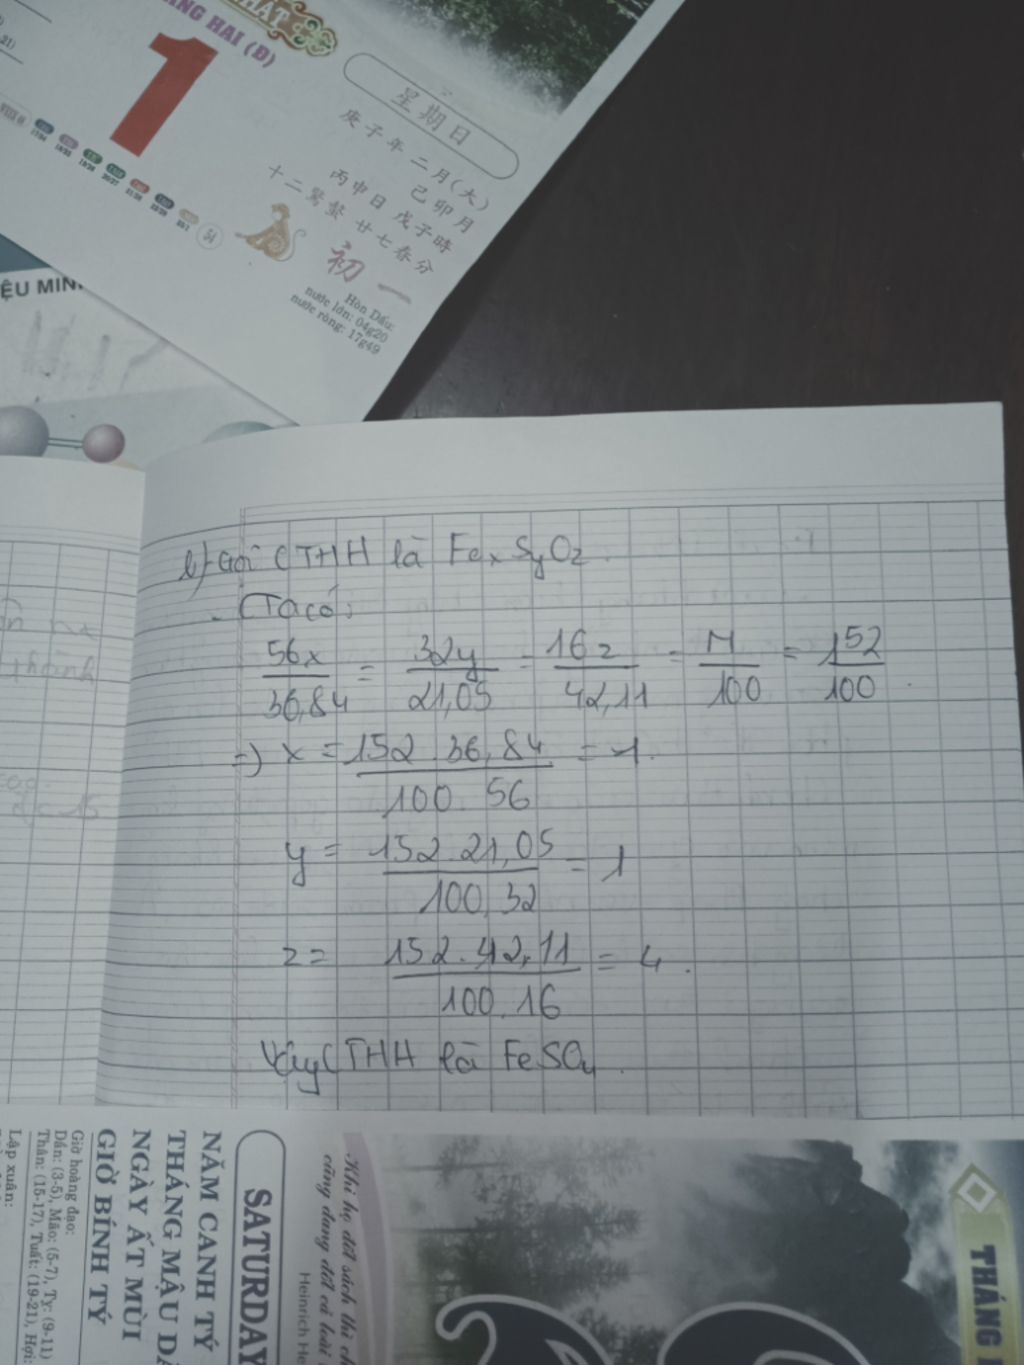 NHẤT
THÁNG HAI (Đ)
1
星期日
庚子年 二月(大)
己卯月
丙申日 戊子時
十二驚蟄 廿七春分
初一
Hòn Dấu:
nước lớn: 04g20
nước ròng: 17g49
54
ỆU MIN
b) Gọi CTHH là FexSyOz.
Ta có:
56x/36,84 = 32y/21,05 = 16z/42,11 = M/100 = 152/100.
=) x = 152.36,84/100.56 = 1.
y = 152.21,05/100.32 = 1
z = 152.42,11/100.16 = 4.
Vậy CTHH là FeSO4.
thành
SATURDAY
NĂM CANH TÝ
THÁNG MẬU D
NGÀY ẤT MÙI
GIỜ BÍNH TÝ
Giờ hoàng đạo:
Dần: (3-5), Mão: (5-7), Tỵ: (9-11)
Thân: (15-17), Tuất: (19-21), Hợi:
Lập xuân:
Khi họ đốt sách thì ch
cũng đang đốt cả loài
Heinrich He
THÁNG